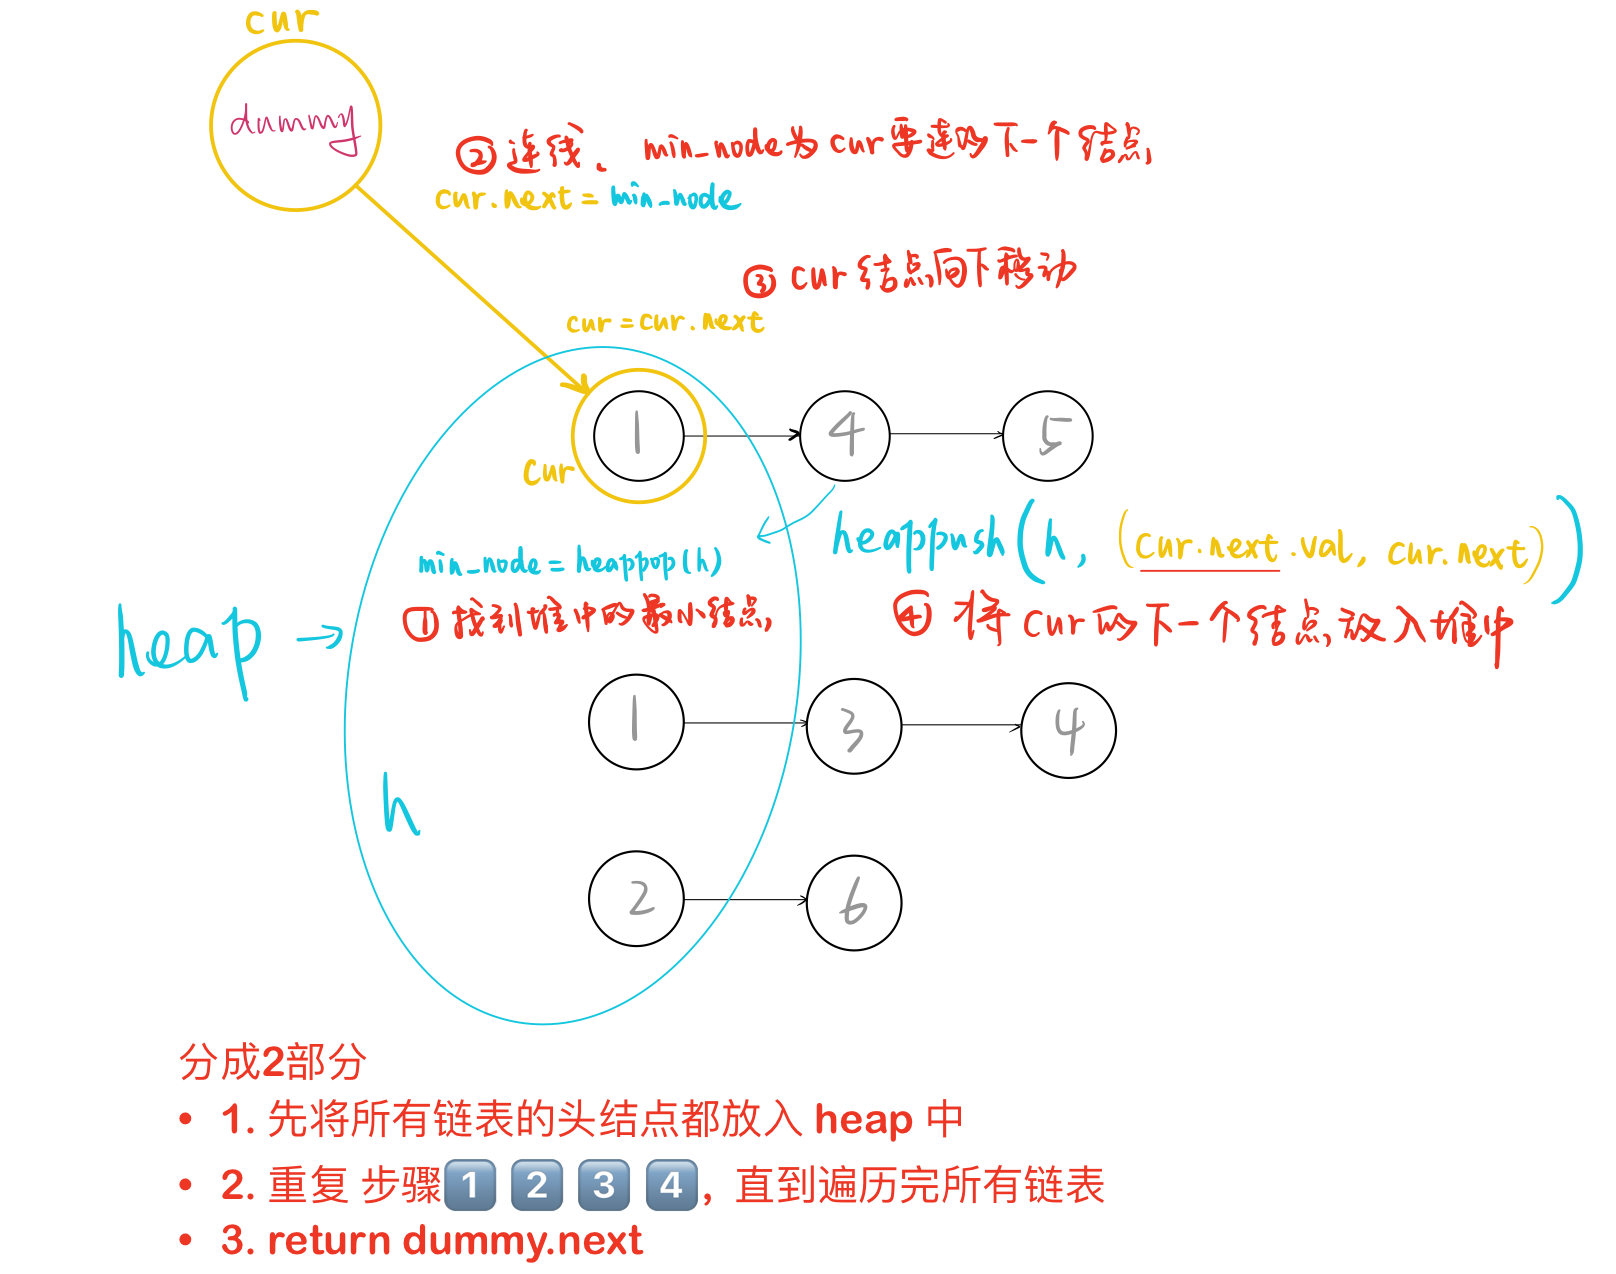 cur
dummy
②连线. min_node为cur要连的下一个结点
cur.next = min_node
③ cur 结点向下移动
cur = cur.next
1
4
5
cur
heappush(h, (cur.next.val, cur.next))
min_node = heappop(h)
①找到堆中的最小结点
④ 将 cur 的下一个结点放入堆中
heap
1
3
4
h
2
6
分成2部分
• 1. 先将所有链表的头结点都放入 heap 中
• 2. 重复 步骤1️⃣ 2️⃣ 3️⃣ 4️⃣，直到遍历完所有链表
• 3. return dummy.next